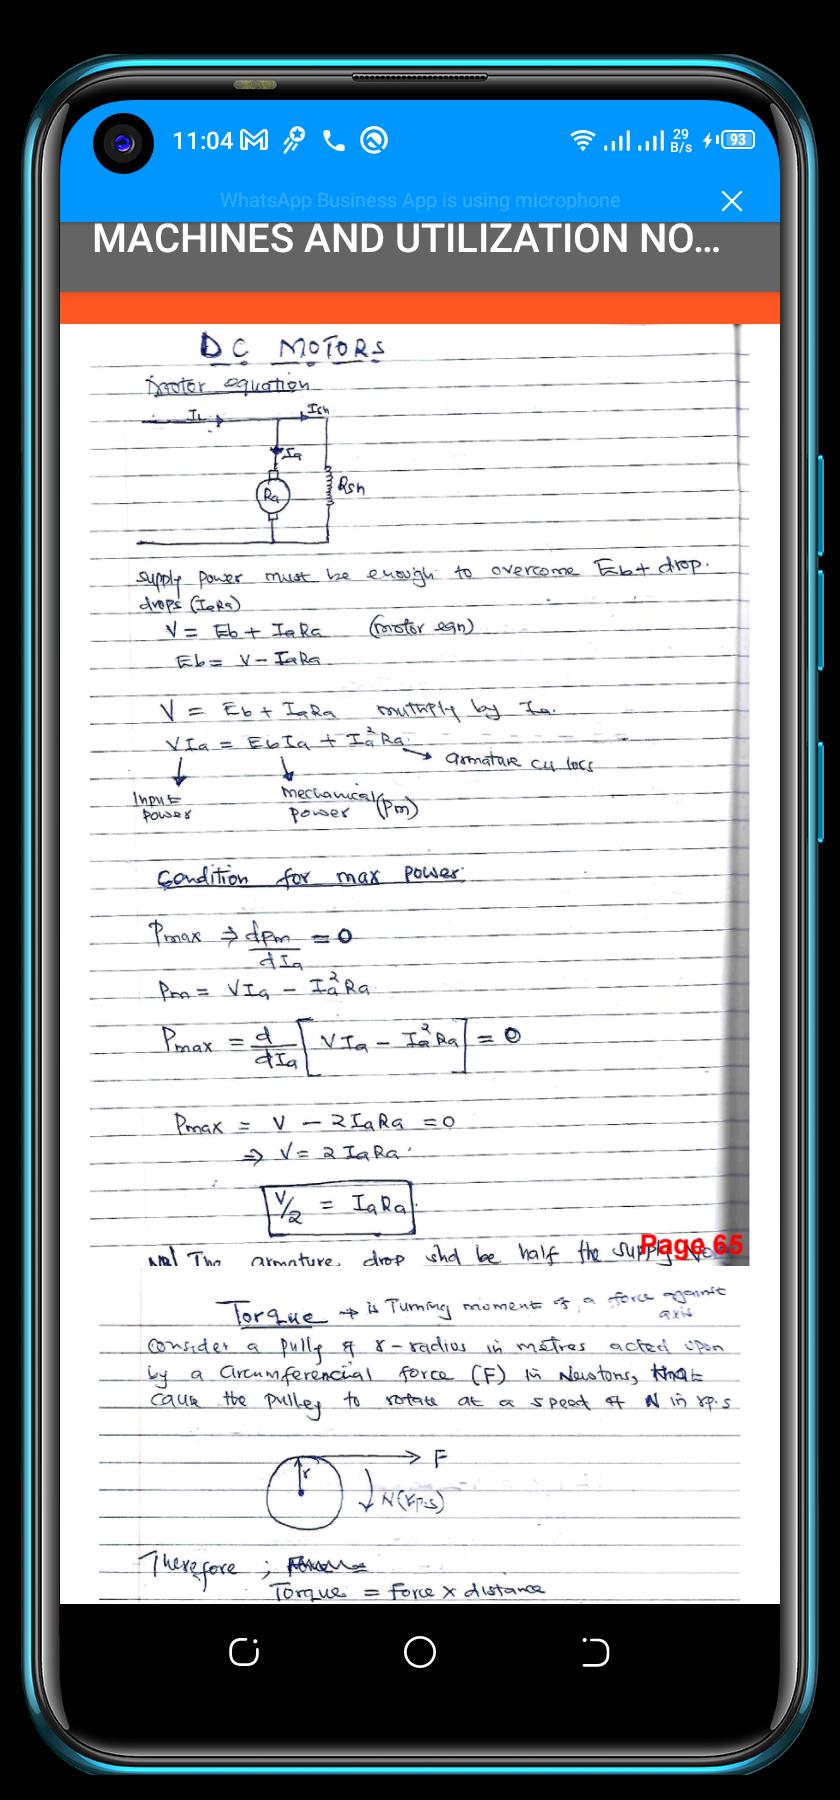 11:04
29 B/s
93
WhatsApp Business App is using microphone
MACHINES AND UTILIZATION NO...
DC MOTORS
Motor equation
IL
Ish
Ia
Ra
Rsh
supply power must be enough to overcome Eb+ drop.
drops (IaRa)
V = Eb + IaRa (motor eqn)
Eb = V - IaRa
V = Eb + IaRa multiply by Ia.
VIa = EbIa + Ia²Ra.
armature cu loss
Input power
Mechanical power (Pm)
Condition for max power:
Pmax ⇒ dPm/dIa = 0
Pm = VIa - Ia²Ra
Pmax = d/dIa [VIa - Ia²Ra] = 0
Pmax = V - 2IaRa = 0
⇒ V = 2IaRa
V/2 = IaRa
The armature drop shd be half the supply
Page 65
Torque → is Turning moment of a force against axis
consider a pully of r-radius in metres acted upon
by a Circumferencial force (F) in Newtons, that
cause the pulley to rotate at a speed of N in r.p.s
F
r
N(r.p.s)
Therefore ;
Torque = force x distance